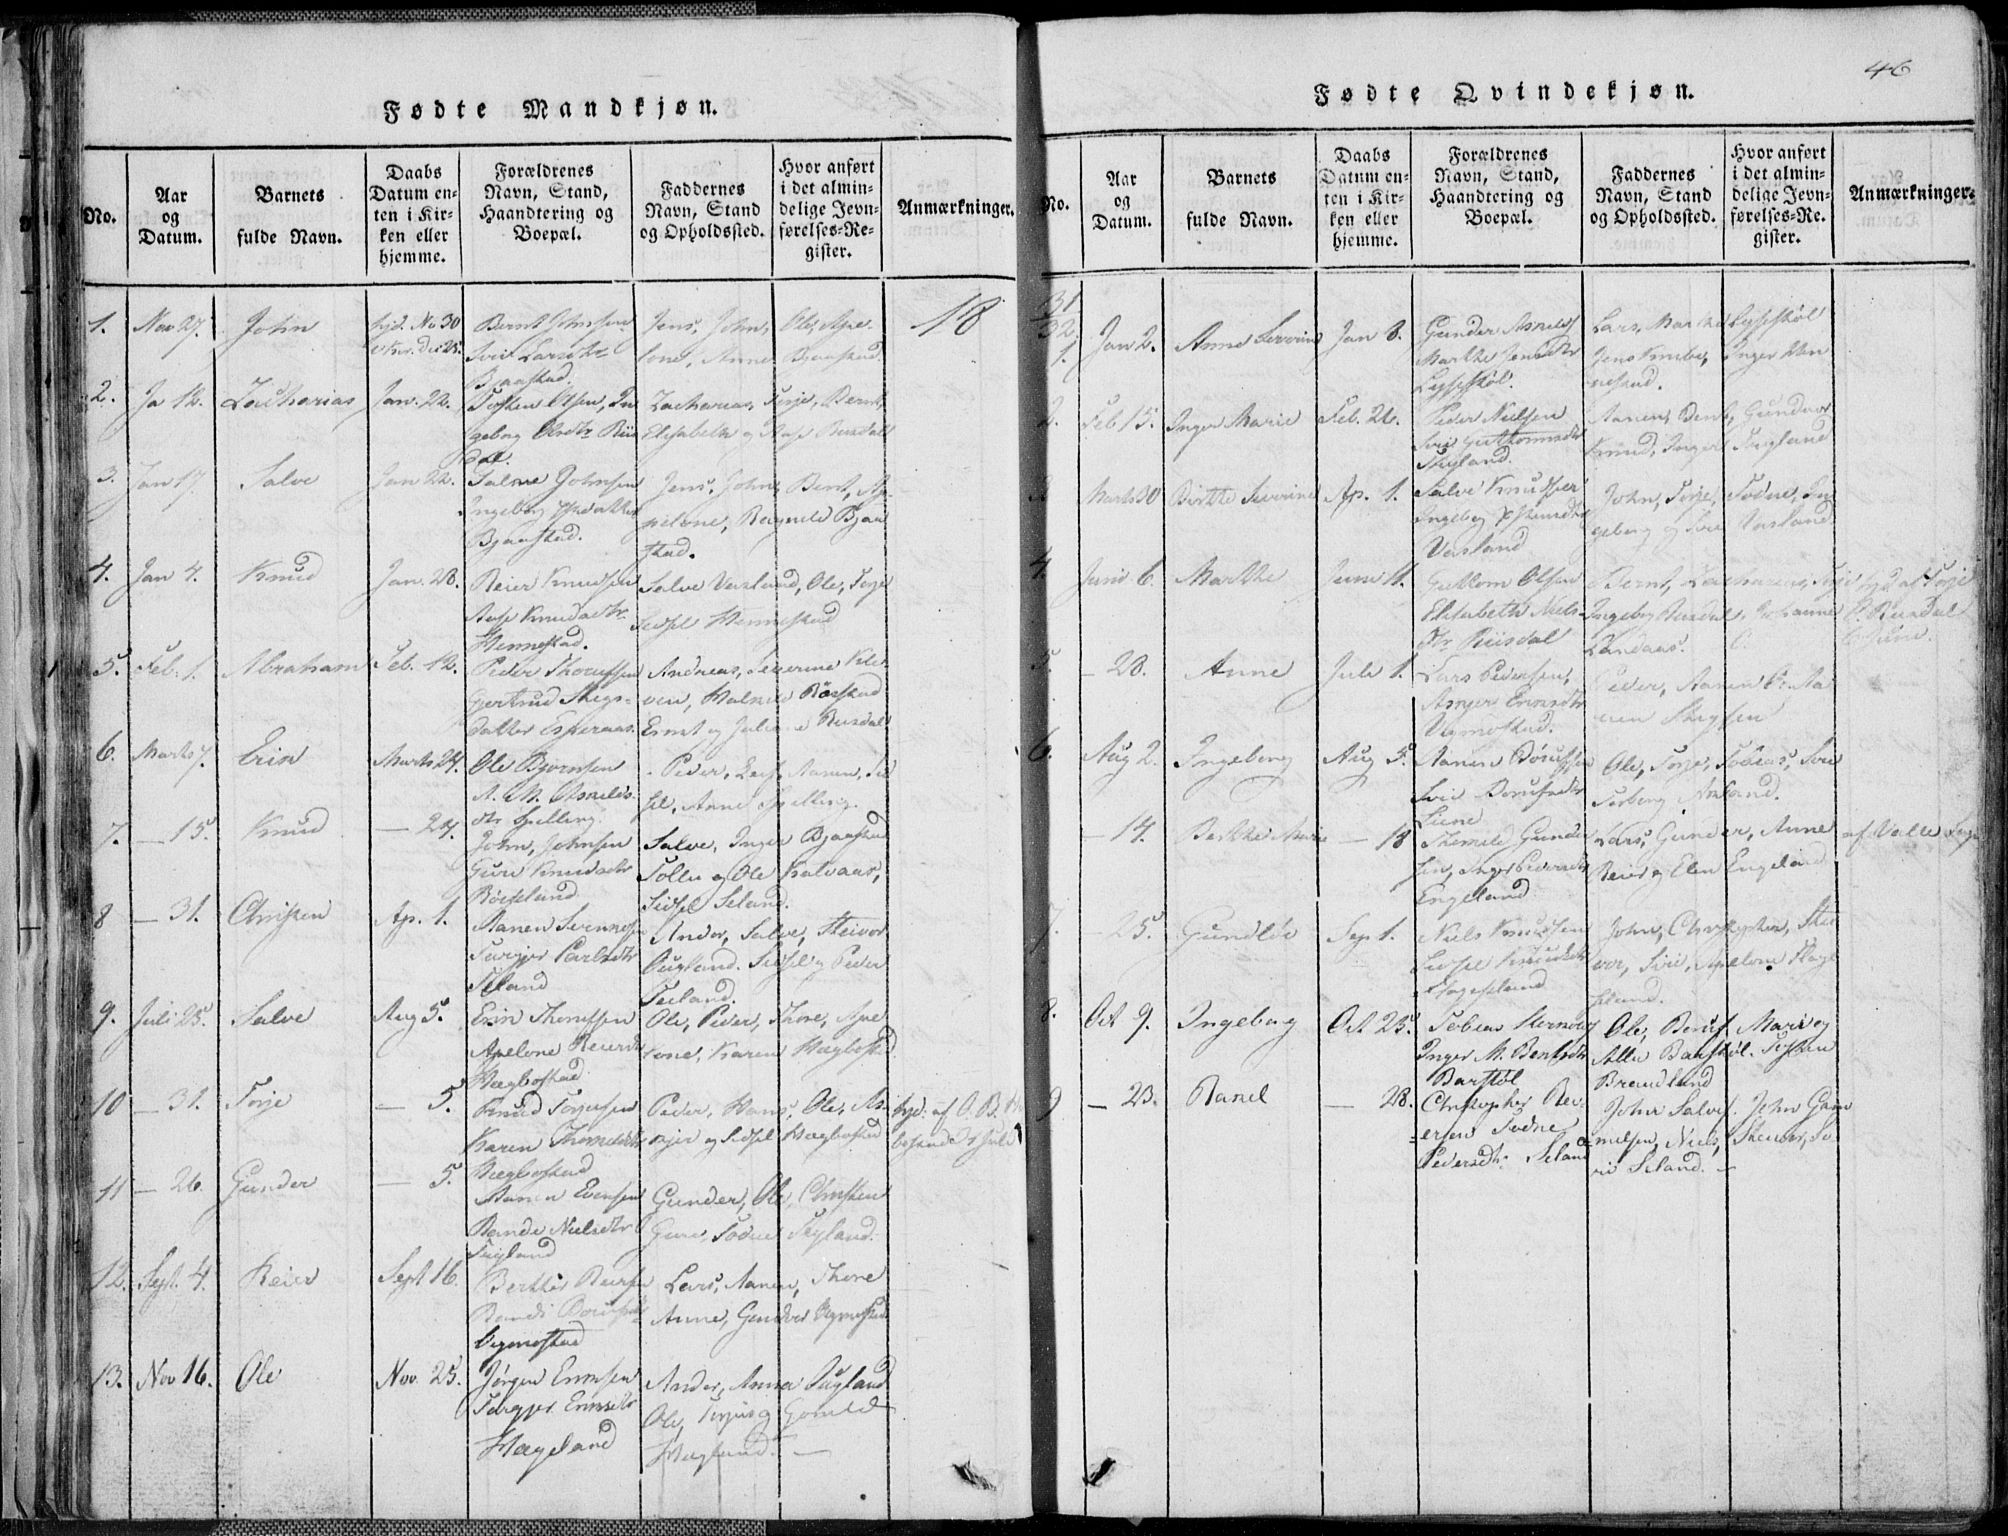 46
Fødte Mandkjøn.
No.
Aar
og
Datum.
Barnets
fulde Navn.
Daabs
Datum en-
ten i Kir-
ken eller
hjemme.
Forældrenes
Navn, Stand,
Haandtering og
Boepæl.
Faddernes
Navn, Stand
og Opholdssted.
Hvor anført
i det almin-
delige Jevn-
førelses-Re-
gister.
Anmærkninger.
18
1. Nov 27. John
hjd. No 30
Dec 25.
Bernt Johnsen
Siri Larsdtr
Bjaastad.
Jens, John, Ole, Ape-
lone, Anne Bjaastad.
2. Ja 12. Zacharias Jan. 22.
Torsten Olsen, In
geborg Olsdtr Riis
dal.
Zacharias, Terje, Bernt,
Elisabeth og Aase Riisdal
3. Jan 17. Salve Jan 22.
Salve Johnsen
Ingeborg
Bjaastad.
Jens, John, Bent, Ap-
pelone, Ragnild Bjaa
stad.
4. Jan 4. Knud Jan. 28.
Reier Knudsen
Aase Knudsdtr
Hennestad.
Salve Vasland, Ole, Terje
Sidsel Hennestad
5. Feb. 1. Abraham Feb. 12.
Peder Thorufsen
Gjertrud Stigs-
datter Esperaas.
Andreas, Severine Klev
ven, Røisstad
Ernst og Juliane Riisdal
6. Marts 7. Erin Marts 24.
Ole Bjørnsen
A. M. Asnilds-
dtr Spilling.
Peder, Leif, Aanen, Sid
sel, Anne Spilling.
7. — 15. Knud — 24.
John Johnsen
Guri Knudsdtr
Røiseland
Salve, Inger Bjaastad
Tolle og Ole Kalvaas,
Sidsel Seland.
8 — 31. Christen Ap. 1.
Aanen Svennsen
Targjer Carlsdtr
Seland
Ander, Salve, Steivor
Øugland. Sidsel og Peder
Seland.
9. Juli 25. Salve Aug 5.
Erin Thorufsen
Apelone Reiersdtr
Hægbostad
Ole, Peder, Thore, Ape
lone, Karen Hægbostad
10 — 31. Terje — 5.
Knud Terjersen
Karen Thorufsdtr
Hægbostad
Peder, Hans, Ole, As-
njer og Sidsel Hægbostad
hjd. af O. B. Hæ
bostad 31 Juli
11 — 26. Gunder — 5.
Aanen Evensen
Rande Nielsdtr
Tugland
Gunder, Ole, Christen
Guro, Todne Tugland.
12. Sept. 4. Reier Sept 16.
Berthe Reiersen
Randi
Vigmostad
Lars, Aanen, Thore
Anne, Gundvor Vigmostad
13. Nov 16. Ole Nov. 25.
Jørgen Erinsen
Targjer Erinsdtr
Hægeland
Ander, Anna Øugland
Ole, Terje og Gunild
Hægland. —
Fødte Qvindekjøn.
No.
Aar
og
Datum.
Barnets
fulde Navn.
Daabs
Datum en-
ten i Kir-
ken eller
hjemme.
Forældrenes
Navn, Stand,
Haandtering og
Boepæl.
Faddernes
Navn, Stand
og Opholdssted.
Hvor anført
i det almin-
delige Jevn-
førelses-Re-
gister.
Anmærkninger.
31
32
1. Jan 2. Anne Severine Jan 8.
Gunder Asnilds
Marthe Jensdtr
Lyssestøl.
Lars, Marthe Lyssestøl
Jens Knibe, Inger Van
nestad.
2. Feb 15. Inger Marie Feb. 26.
Peder Nielsen
Siri Guttormsdtr
Tugland.
Aanen, Bent, Gundvor
Knud, Inger Tugland
3 Marts 30 Birthe Severine Ap. 1.
Salve Knudsen
Ingeborg
Vasland
John, Terje, Todne, In
geborg og Siri Vasland.
4. Juni 6. Marthe Juni 11.
Guttom Olsen
Elisabeth Niels-
dtr Riisdal
Bernt, Zacharias, Terje
Ingeborg Riisdal, Johanne
Landaas.
hjd af Terje
O. Riisdal
5. — 28. Anne Juli 1.
Lars Pedersen,
Asnjer Erinsdtr
Vigmostad.
Peder, Aanen
6. Aug 2. Ingeborg Aug 5.
Aanen Børufsen
Siri Børufsdtr
Liene
Ole, Terje, Tobias, Siri
Torborg
— 14. Berthe Marie — 18
Themild Gunder
sen, Inger Pedersdtr
Engeland
Lars, Gunder, Anne
Reier og Elen Engeland
af Valle Sogn
7. — 25. Gundløv Sep 1.
Niels Knudsen
Sidsel Knudsdtr
Hageseland
John, Christopher, Stei
vor, Siri, Apelone Hage
seland.
8. Oct 9. Ingeborg Oct 25.
Tobias
Inger M. Bentsdtr
Barstøl
Ole, Beruf, Mari og
Atlu Barstøl. Torstein
Brandland
9 — 23. Ranel — 28.
Christopher Rei-
ersen Todne
Pedersdtr Seland
John Salves. John Gun
nulsen, Niels, Steivor, Si-
ri Seland. —